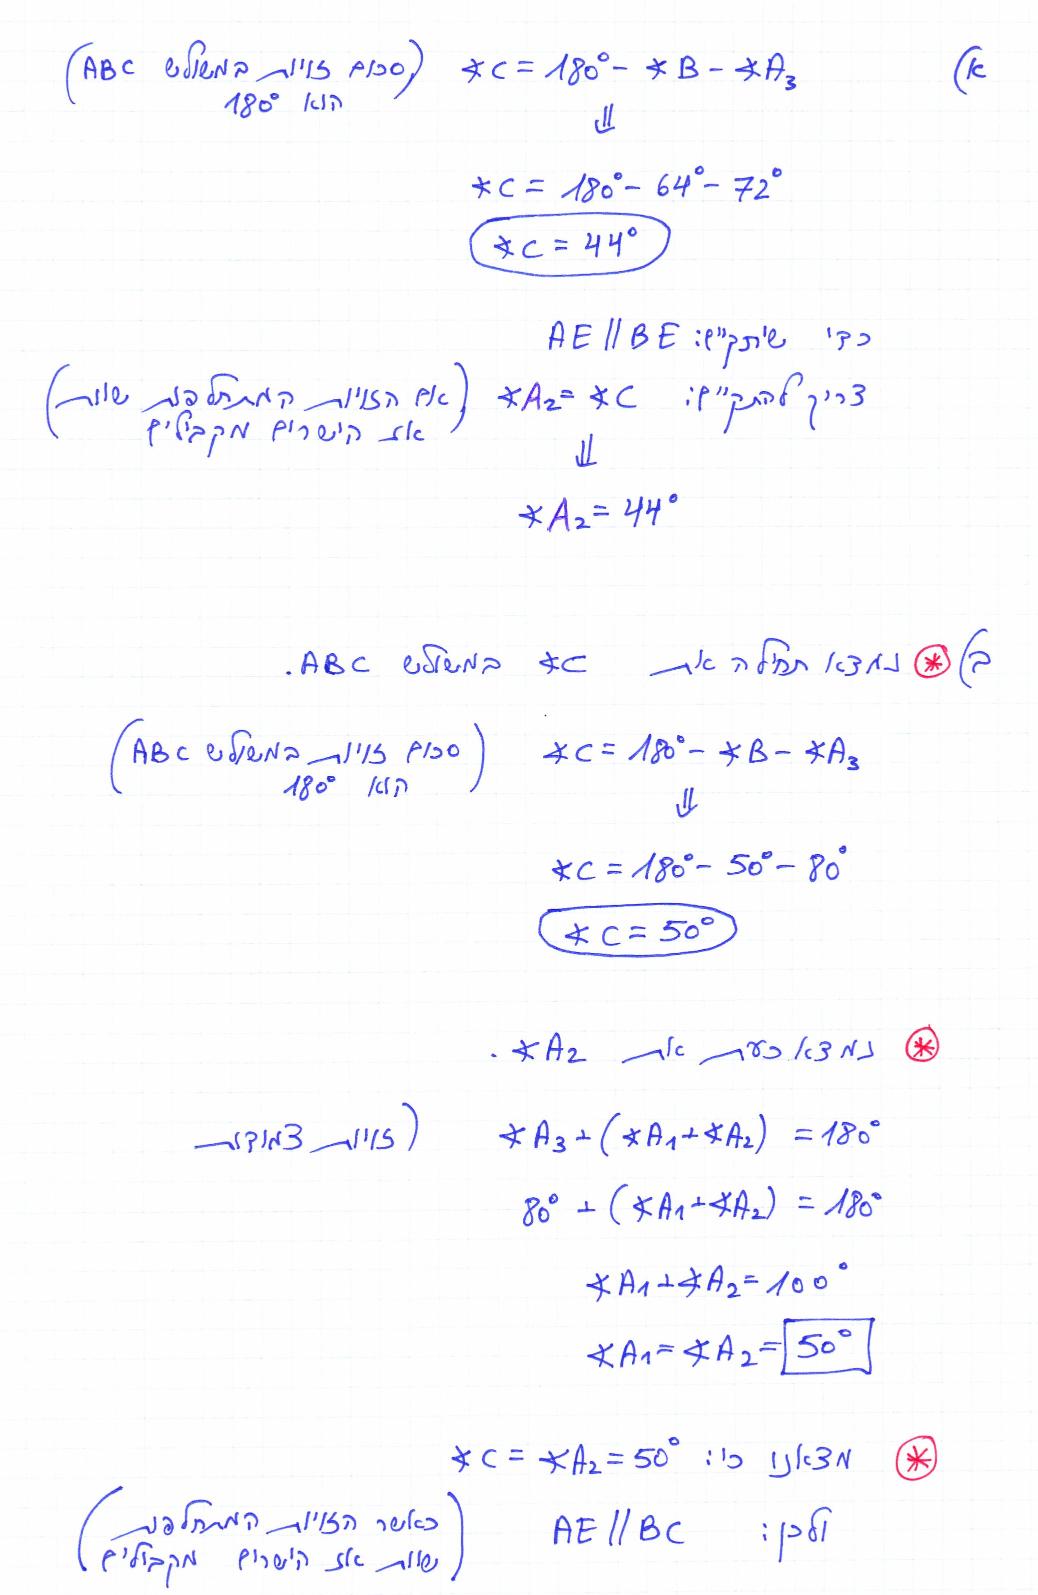 א) ∢C = 180° - ∢B - ∢A₃ (סכום זויות במשולש ABC
הוא 180°)
⇓
∢C = 180° - 64° - 72°
∢C = 44°
כדי שיתקיים: AE || BE
צריך להתקיים: ∢A₂ = ∢C (אם הזויות המתחלפות שוות
אז הישרים מקבילים)
⇓
∢A₂ = 44°
ב) * נמצא תחילה את ∢C במשולש ABC.
∢C = 180° - ∢B - ∢A₃ (סכום זויות במשולש ABC
הוא 180°)
⇓
∢C = 180° - 50° - 80°
∢C = 50°
* נמצא כעת את ∢A₂.
∢A₃ + (∢A₁ + ∢A₂) = 180° (זויות צמודות
80° + (∢A₁ + ∢A₂) = 180°
∢A₁ + ∢A₂ = 100°
∢A₁ = ∢A₂ = 50°
* מצאנו כי: ∢C = ∢A₂ = 50°
ולכן: AE || BC (כאשר הזויות המתחלפות
שוות אז הישרים מקבילים)